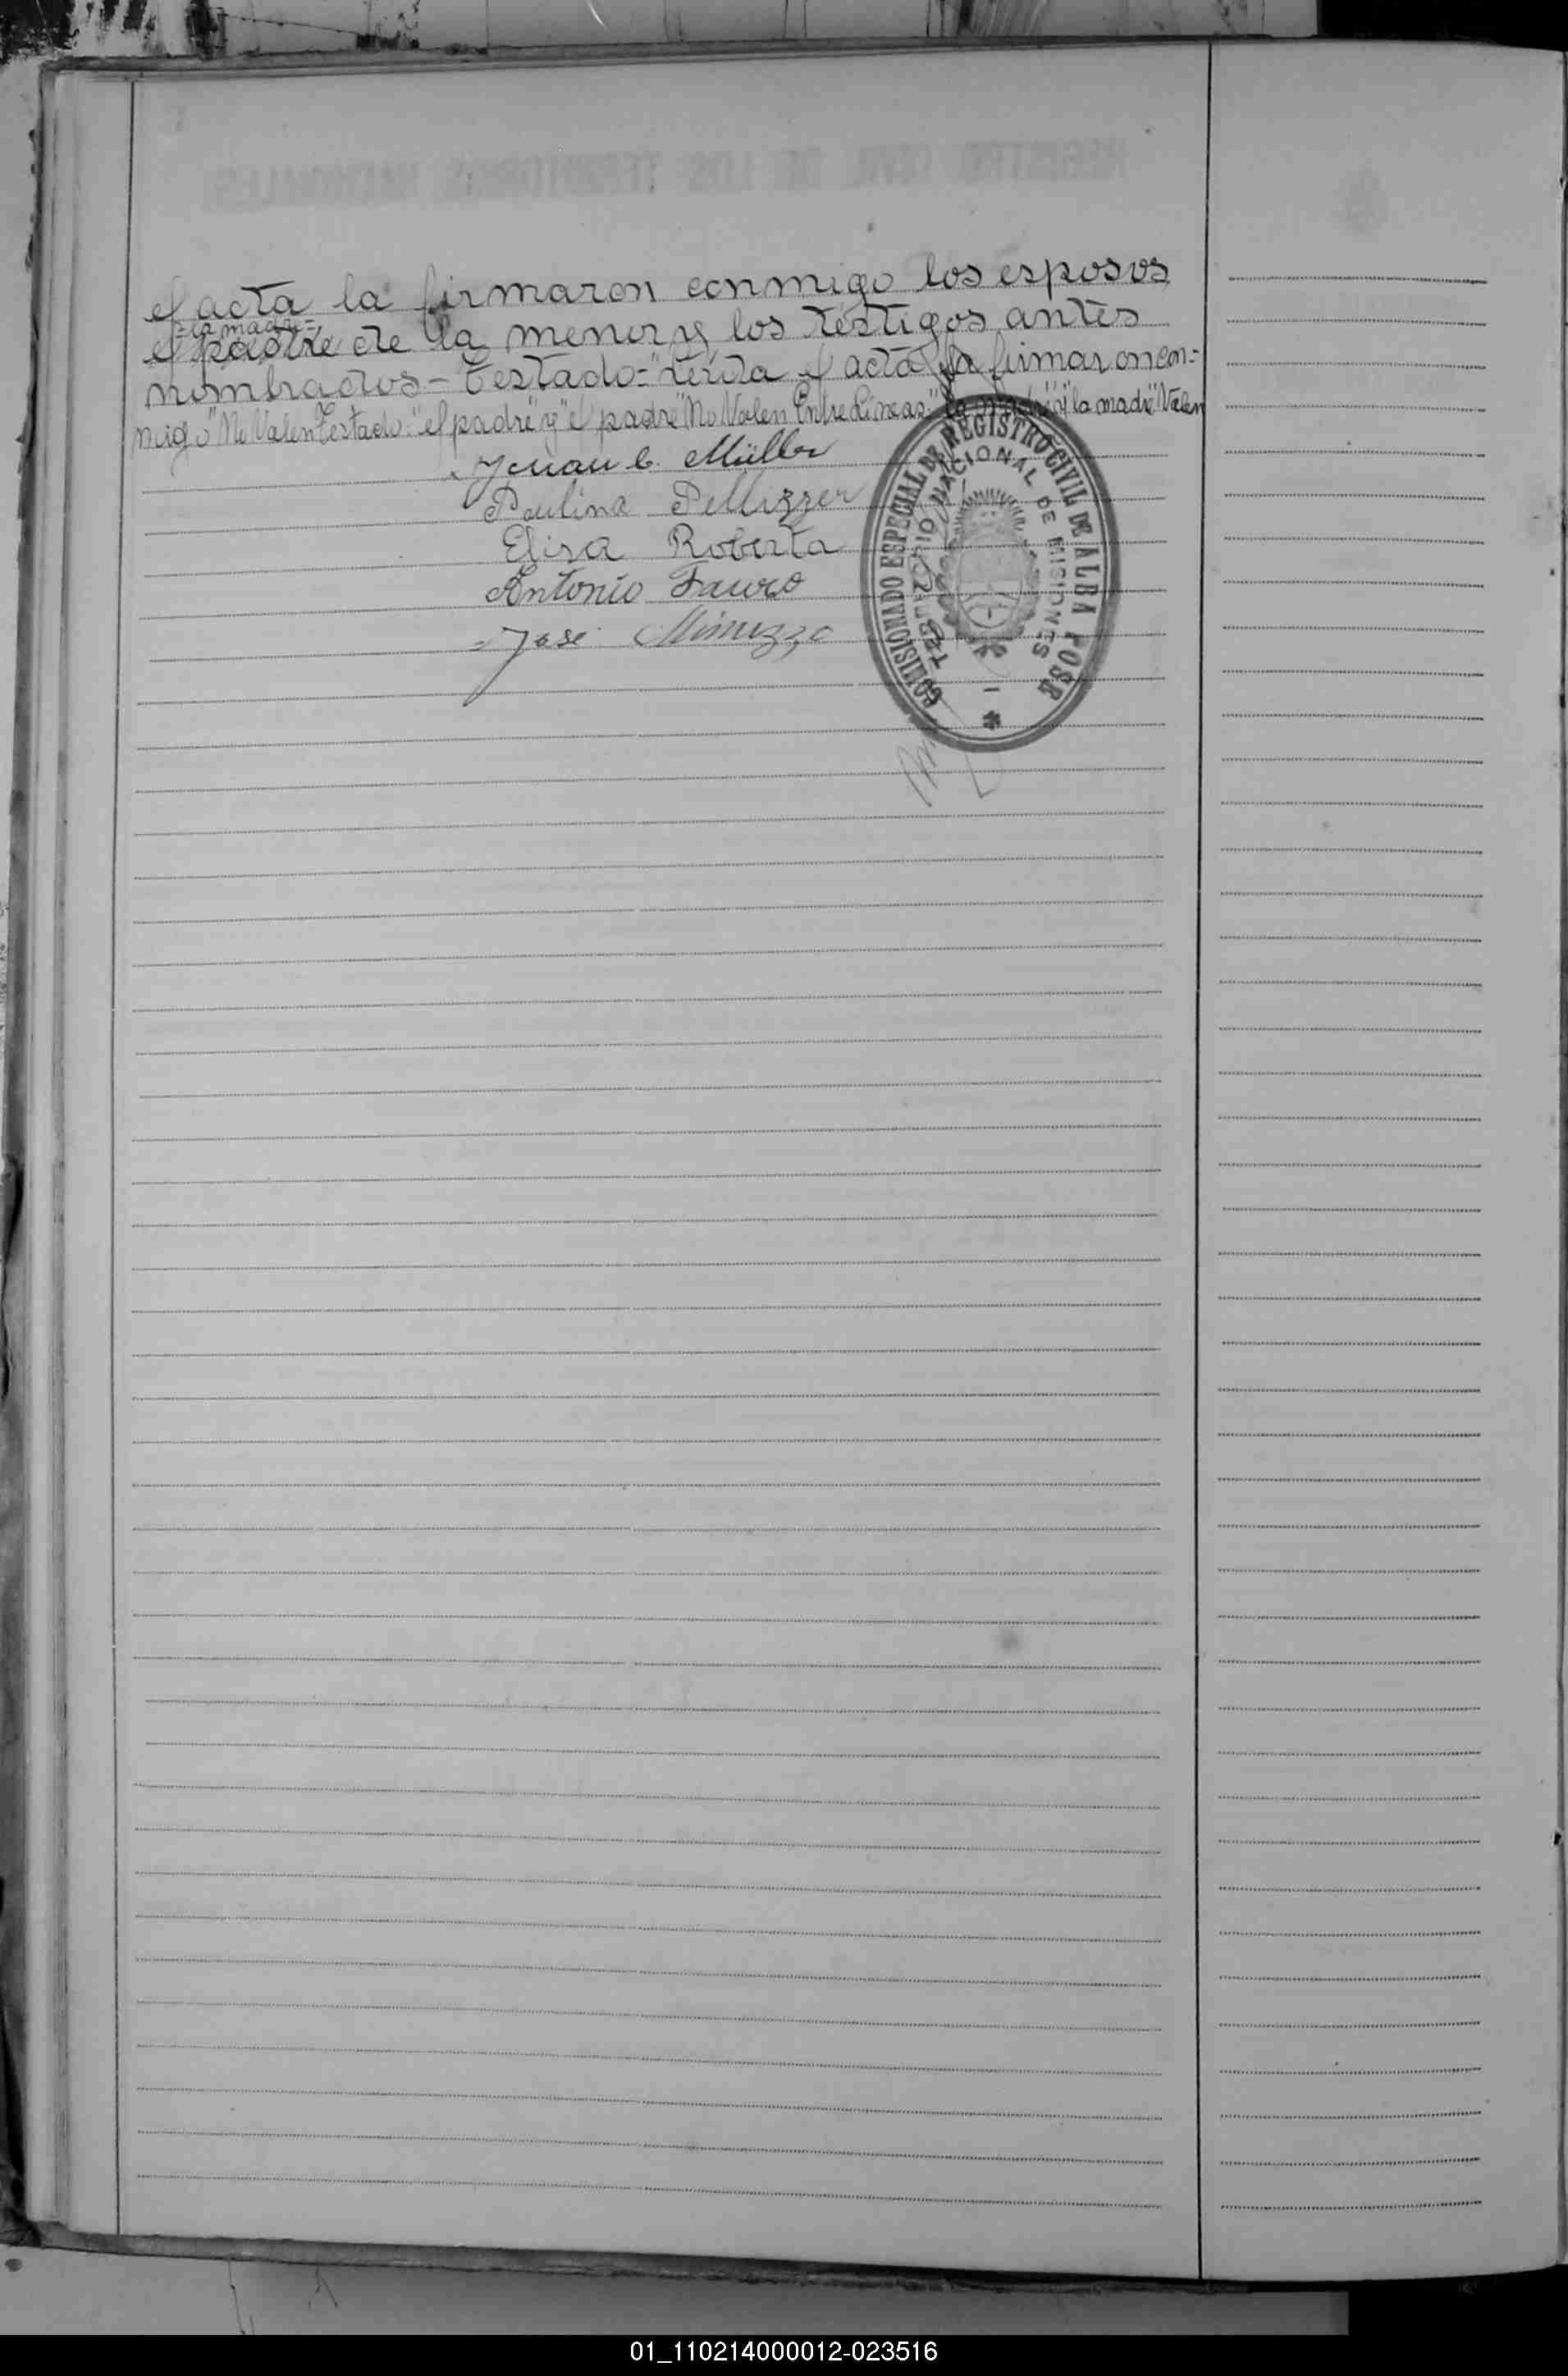 el acta la firmaron conmigo los esposos
=la madre=
el padre de la menor y los testigos antes
nombrados - Testado = "Leída el acta la firmaron con=
migo" No Valen Testado: "el padre" y "el padre" No Valen Entre Lineas: "la madre" y "la madre" Valen
Juan C. Müller
Paulina Pellizzer
Elisa Roberta
Antonio Fauro
José
COMISIONADO ESPECIAL DE REGISTRO CIVIL DE ALBA POSSE
TERRITORIO NACIONAL DE MISIONES
REGISTRO CIVIL DE LOS TERRITORIOS NACIONALES
01_110214000012-023516